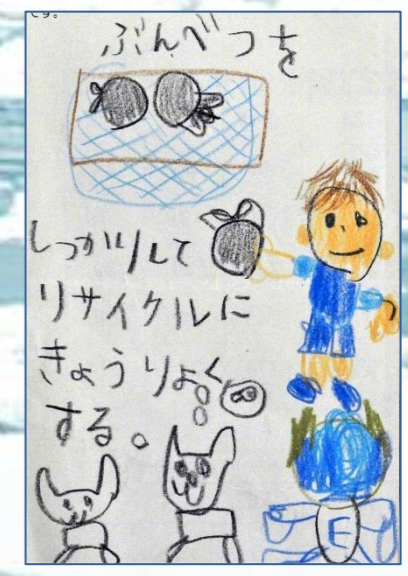 です。
ぶんべつを
しっかりして
リサイクルに
きょうりょく
する。
E